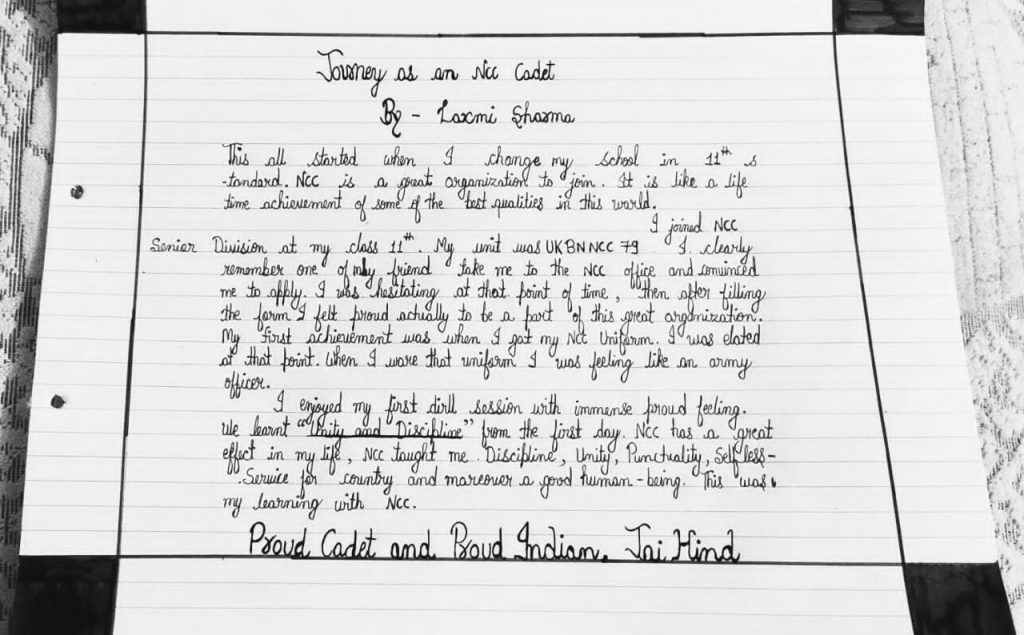 Journey as an Ncc Cadet
By - Laxmi Sharma
This all started when I change my school in 11th s
-tandard. NCC is a great organization to join. It is like a life
time achievement of some of the best qualities in this world.
I joined NCC
Senior Division at my class 11th. My unit was UK BN NCC 79 I clearly
remember one of my friend take me to the NCC office and convinced
me to apply. I was hesitating at that point of time, then after filling
the form I felt proud actually to be a part of this great organization.
My first achievement was when I got my Ncc Uniform. I was elated
at that point. When I wore that uniform I was feeling like an army
officer.
I enjoyed my first dirll session with immense proud feeling.
We learnt "Unity and Discipline" from the first day. NCC has a great
effect in my life, NCC taught me Discipline, Unity, Punctuality, Selfless-
Service for country and moreover a good human-being. This was
my learning with NCC.
Proud Cadet and Proud Indian. Jai Hind